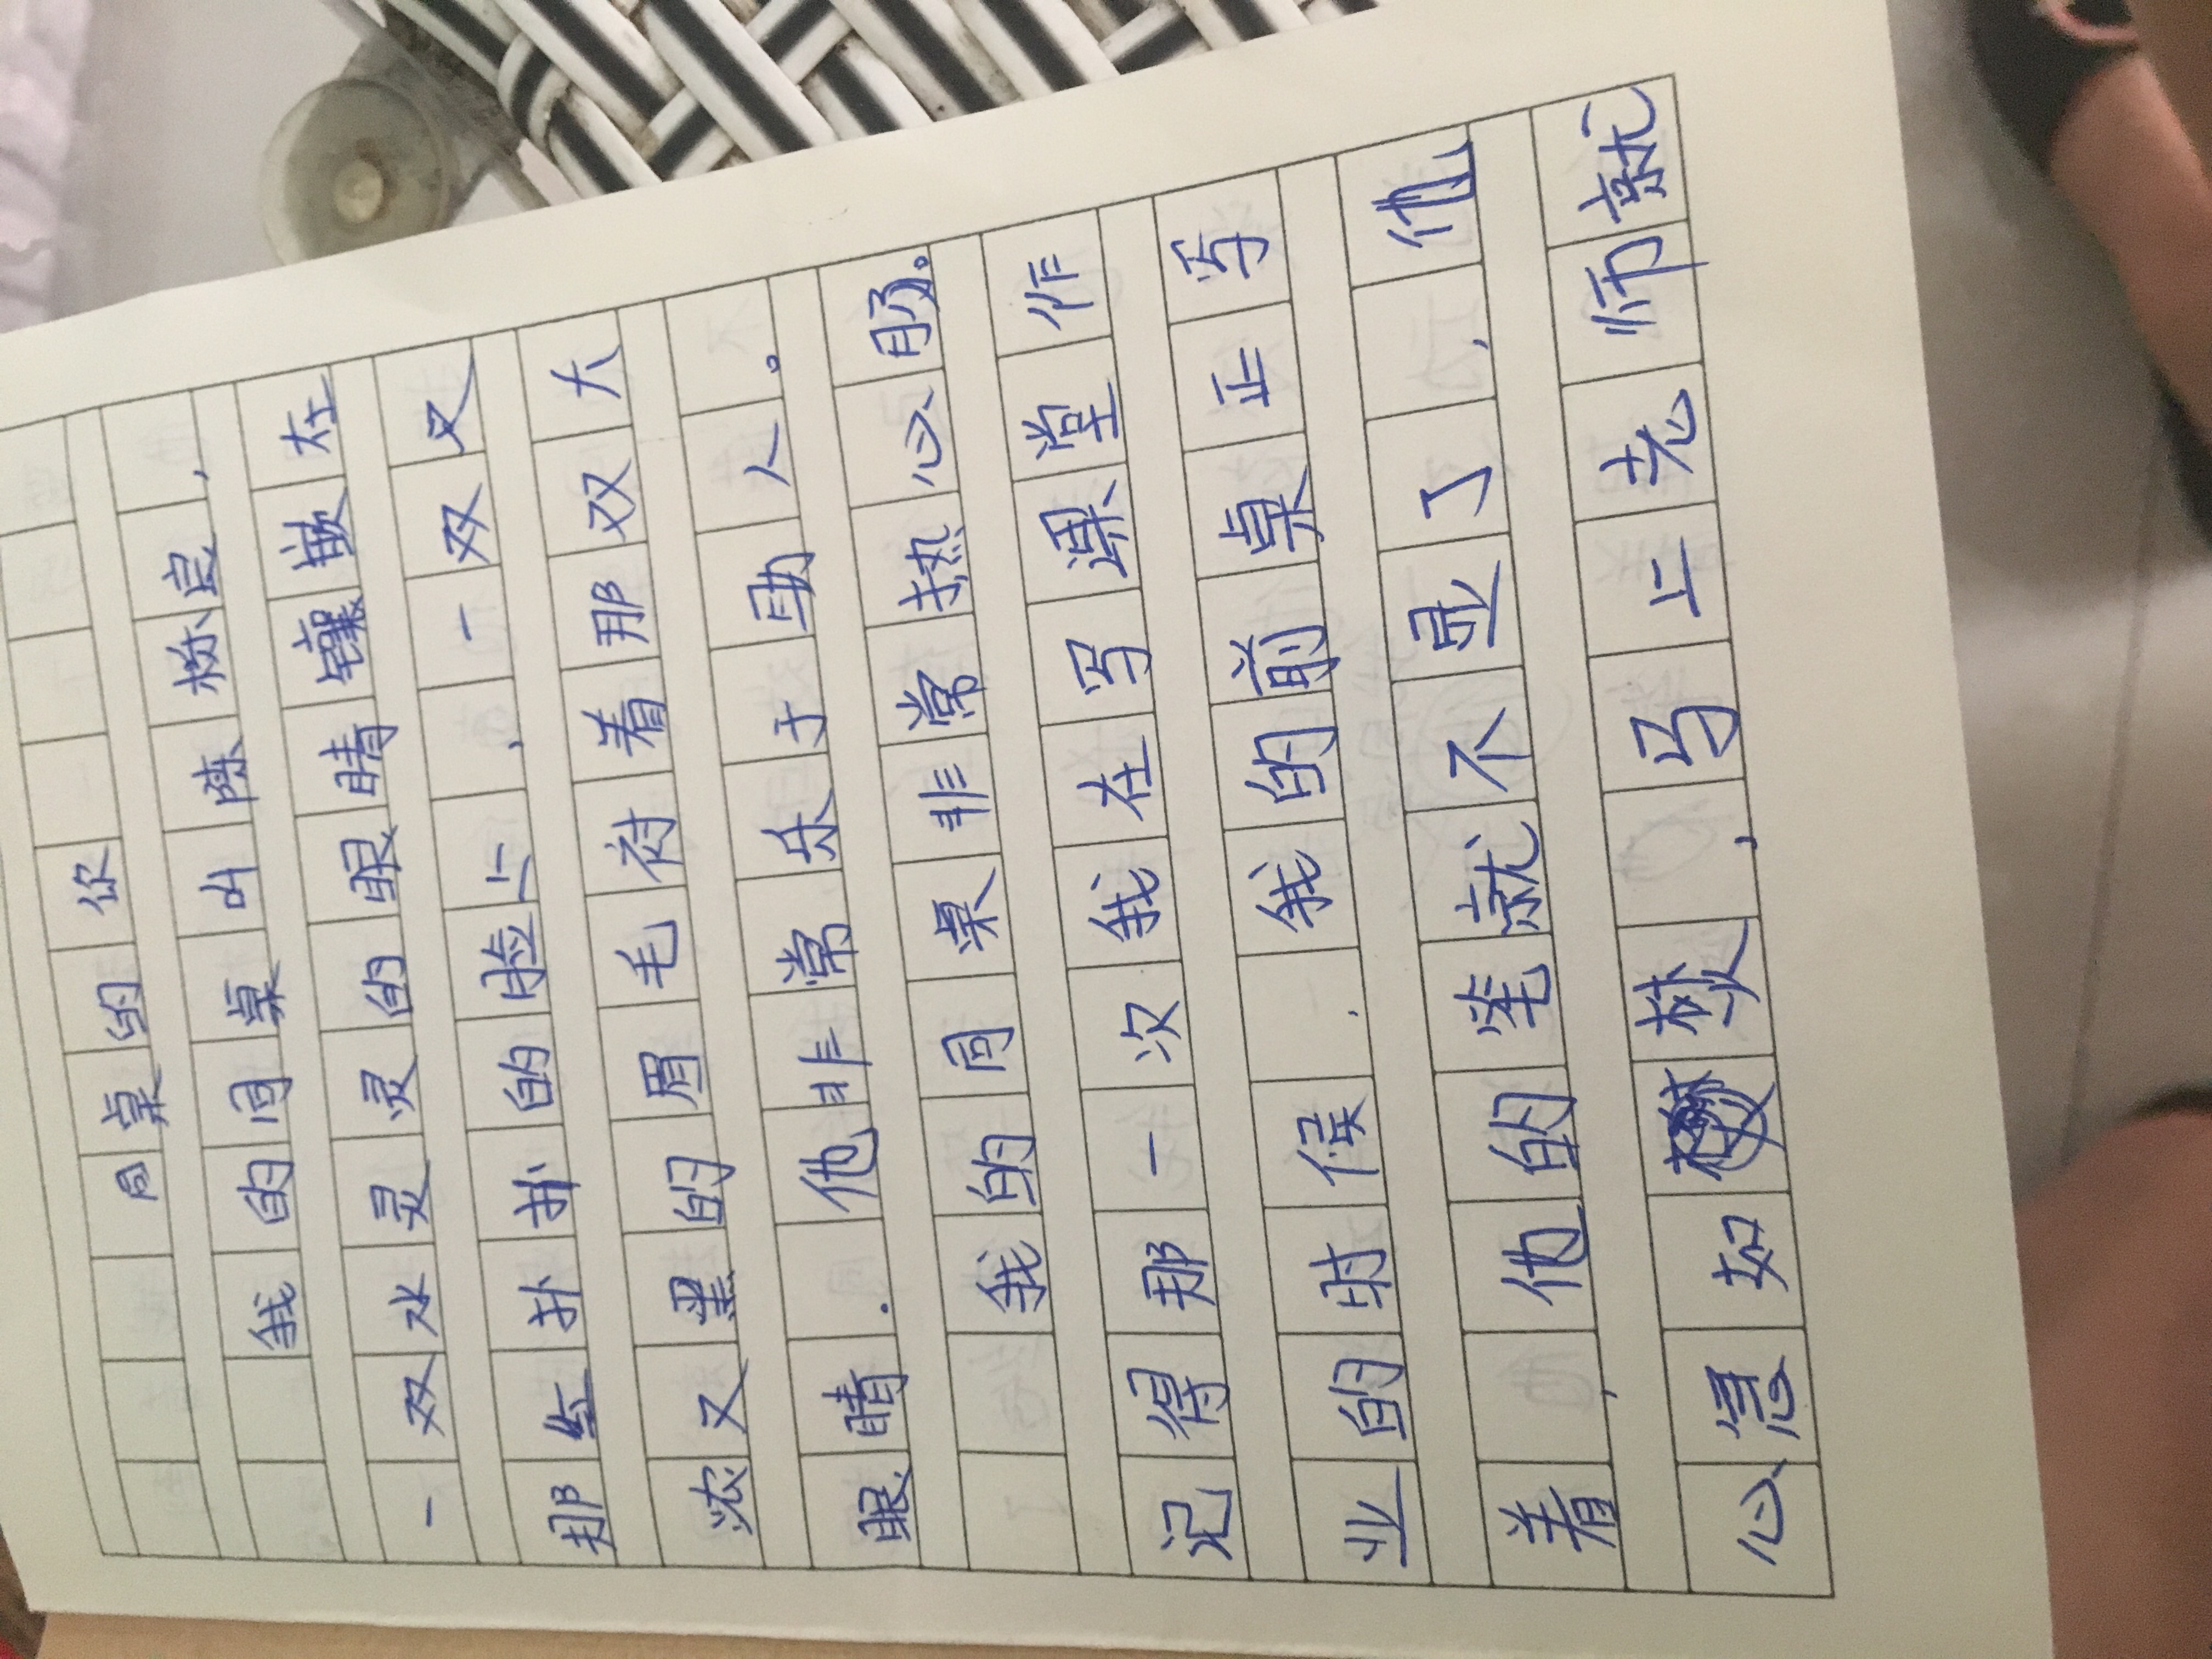 同桌的你
我的同桌叫陈 良,
一双水灵灵的眼睛镶嵌在
那红扑扑的脸上,一双又
浓又黑的眉毛衬着那双大
眼睛.他非常乐于助人。
我的同桌非常热心肠。
记得那一次我在写课堂作
业的时候.我的前桌正写
着,他的笔就不显了,他
心急如焚,马上老师就